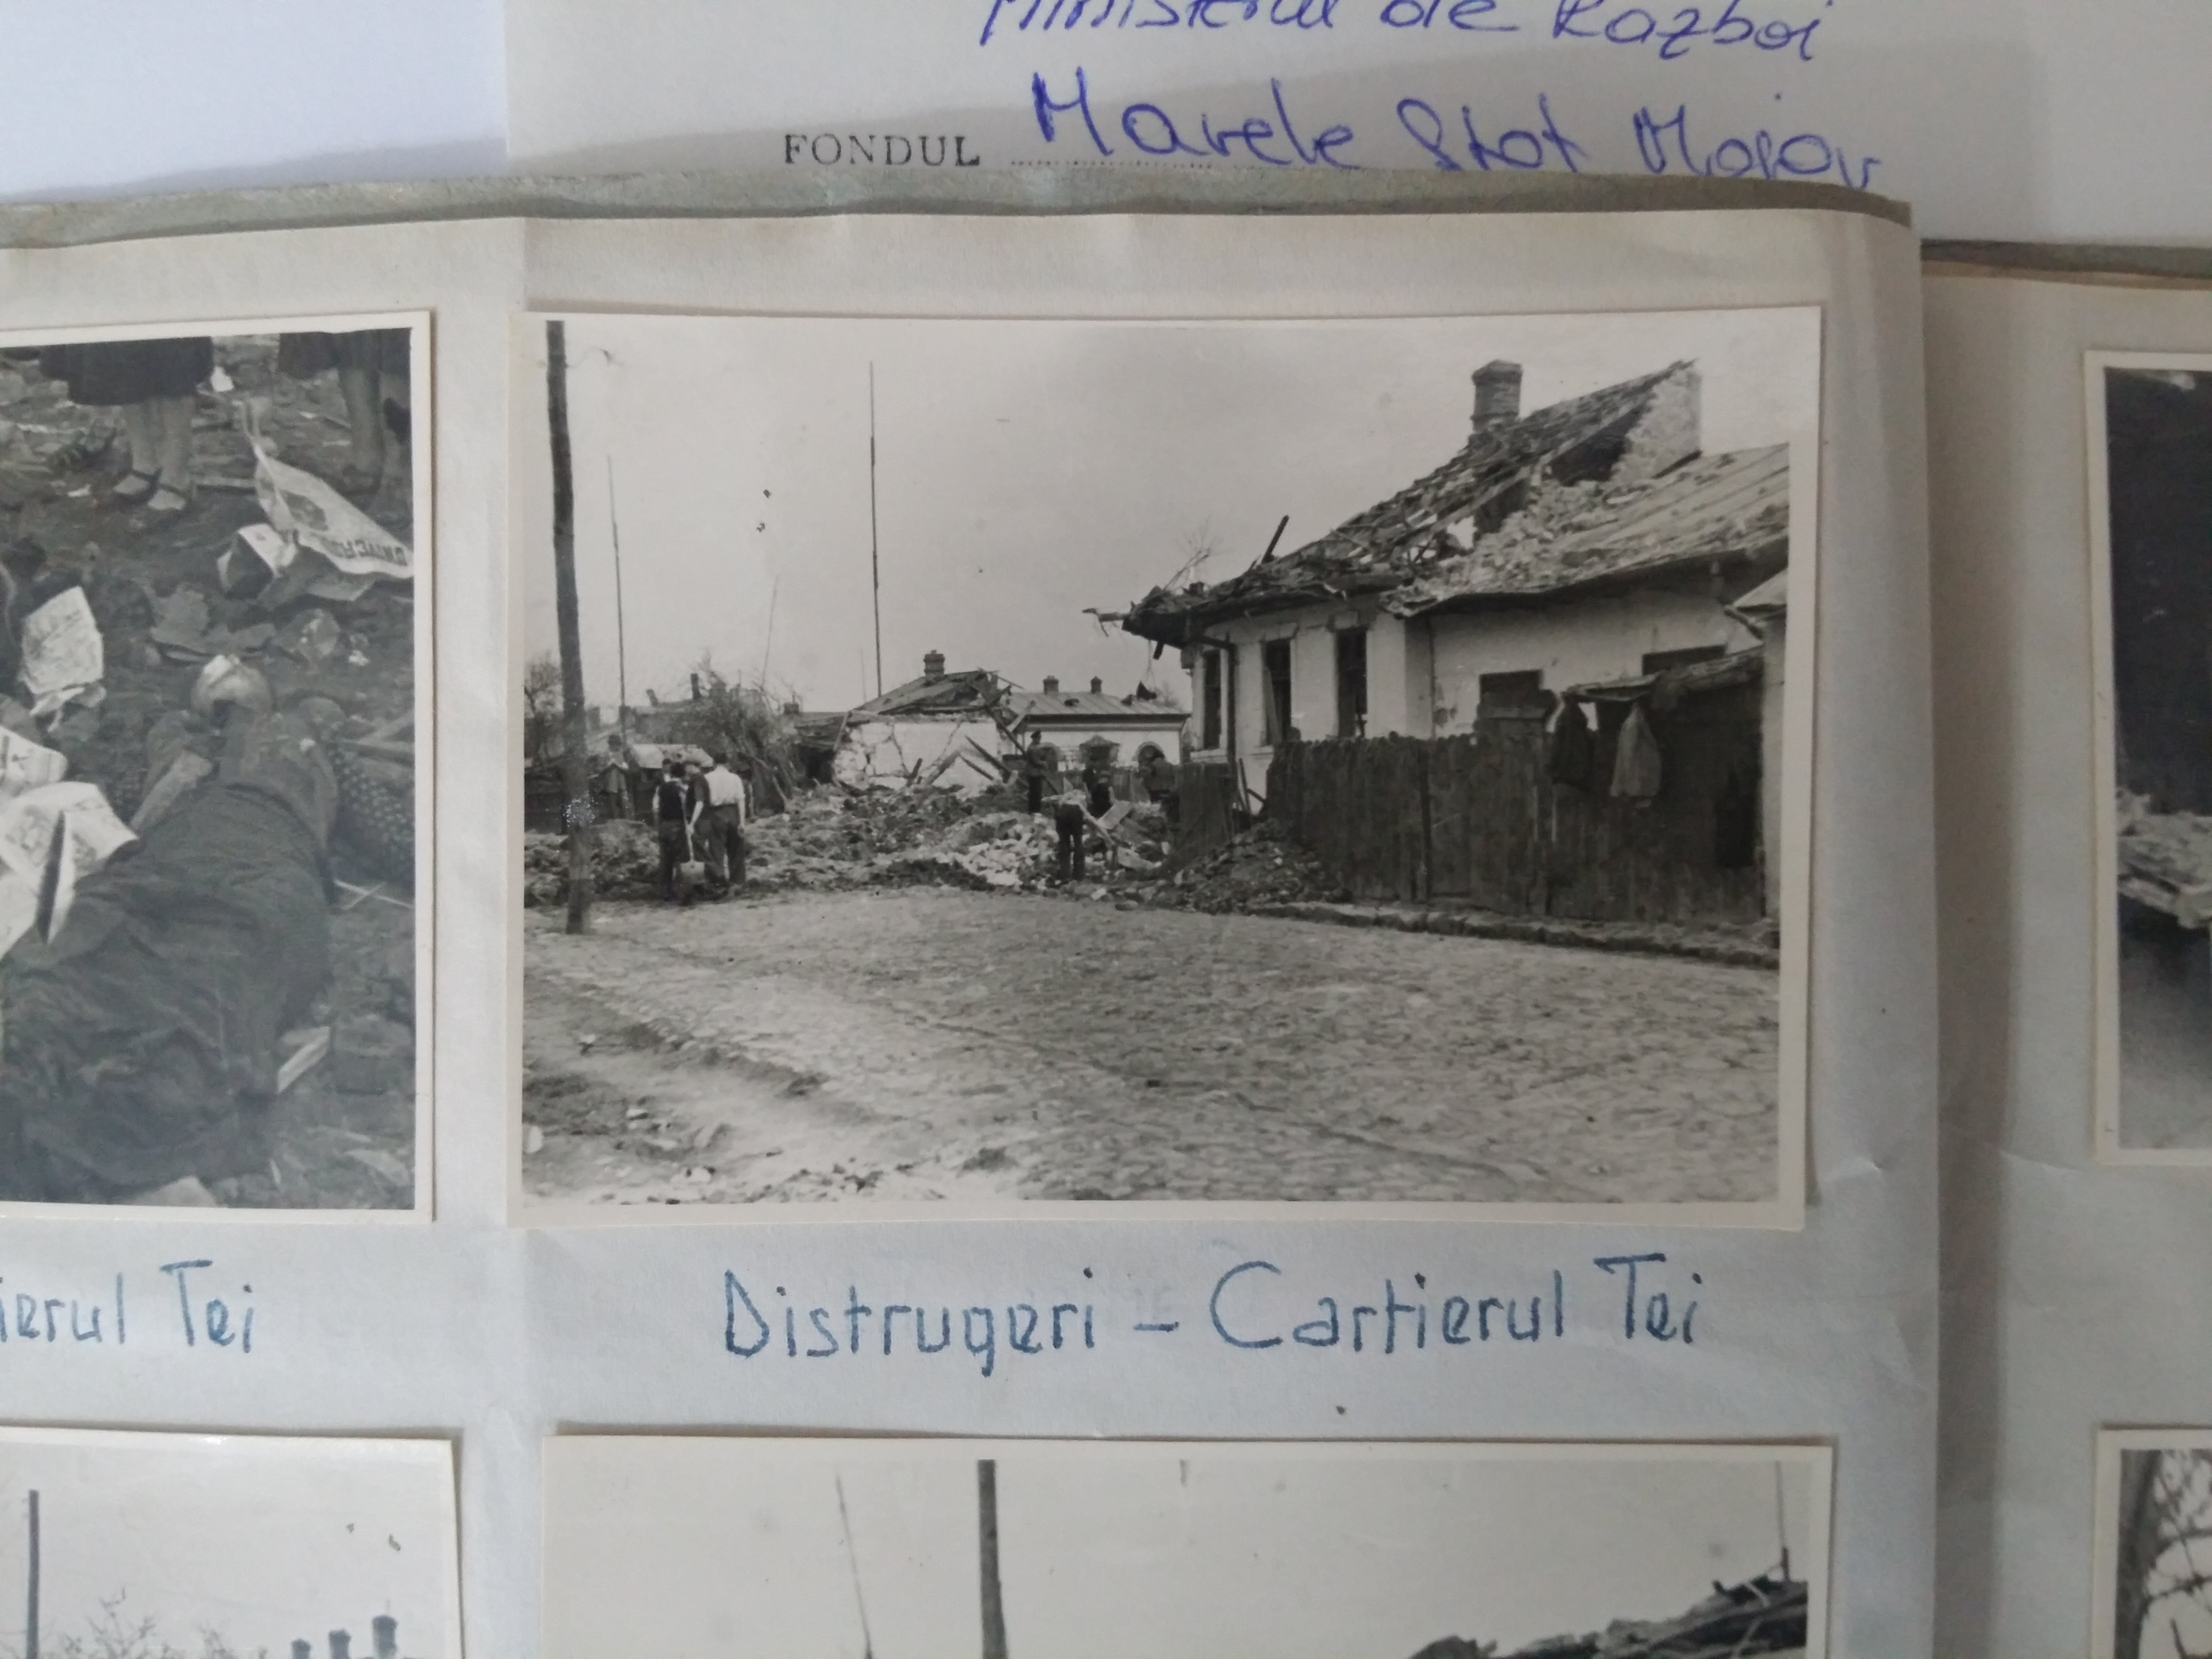 Ministerul de Razboi
FONDUL Marele Stat Major
UNIVERSUL
ierul Tei
Distrugeri - Cartierul Tei